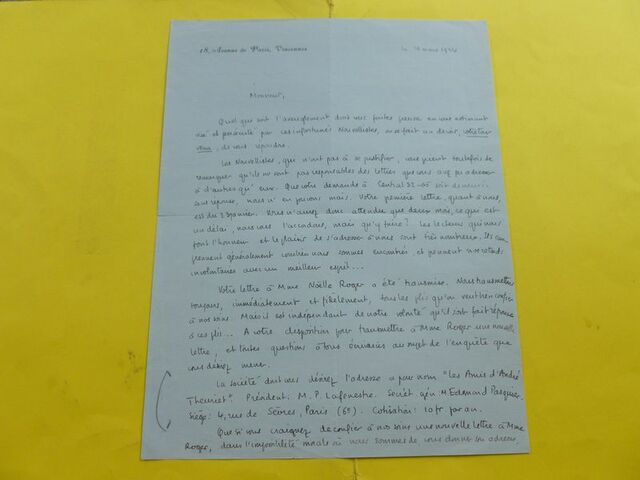 18, Avenue de Paris, Vincennes
Le mars
Monsieur,
Quel que soit l'aveuglement dont vous faites preuve en vous estimant
et persécuté par ces infortunés Nouvellistes, se fait un devoir,
de vous répondre.
Les Nouvellistes, qui n'ont pas à se justifier, vous prient toutefois de
remarquer qu'ils ne sont pas responsables des lettres que vous avez pu adresser
à d'autres qu'eux. Que votre demande à Central 32-65 soit demeurée
sans réponse, nous n'en pouvons mais. Votre première lettre, quant à nous,
est du 2 janvier. Vous n'aurez donc attendu que deux mois, ce qui est
un délai, nous vous l'accordons, mais qu'y faire? Les lecteurs qui nous
font l'honneur et le plaisir de s'adresser à nous sont très nombreux. Ils com
prennent généralement combien nous sommes et prennent nos retards
involontaires avec un meilleur esprit...
Votre lettre à Mme Noëlle Roger a été transmise. Nous transmettons
toujours, immédiatement et fidèlement, tous les plis qu'on veut bien confier
à nos soins. Mais il est indépendant de notre volonté qu'il soit fait réponse
à ces plis... A votre disposition pour transmettre à Mme Roger une nouvelle
lettre, et toutes questions à tous écrivains au sujet de l'enquête que
vous désirez mener.
La société dont vous désirez l'adresse a pour nom "Les Amis d'André
Theuriet". Président: M. P. Lafenestre. Secrét. gén: M. Edouard Pasquier.
Siège: 4, rue de Sèvres, Paris (6e). Cotisation: 10 fr par an.
Que si vous craignez de confier à nos soins une nouvelle lettre à Mme
Roger, dans l'impossibilité morale où nous sommes de vous donner son adresse,